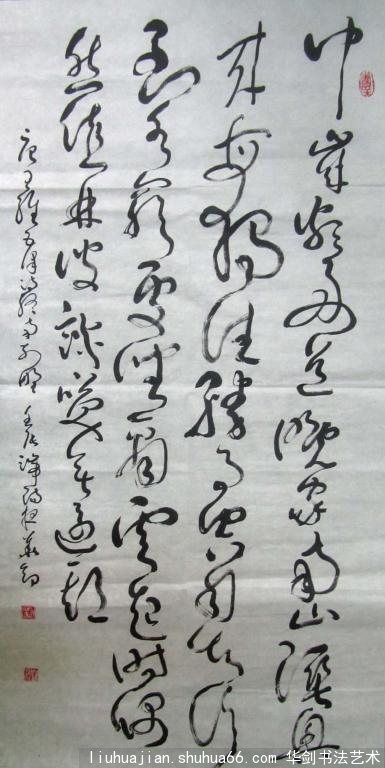 中岁颇好道晚家南山陲兴
来每独往胜事空自知行
到水穷处坐看云起时偶
然值林叟谈笑无还期
唐王维五律诗终南别业 壬辰 华剑
liuhuajian.shuhua66.com 华剑书法艺术